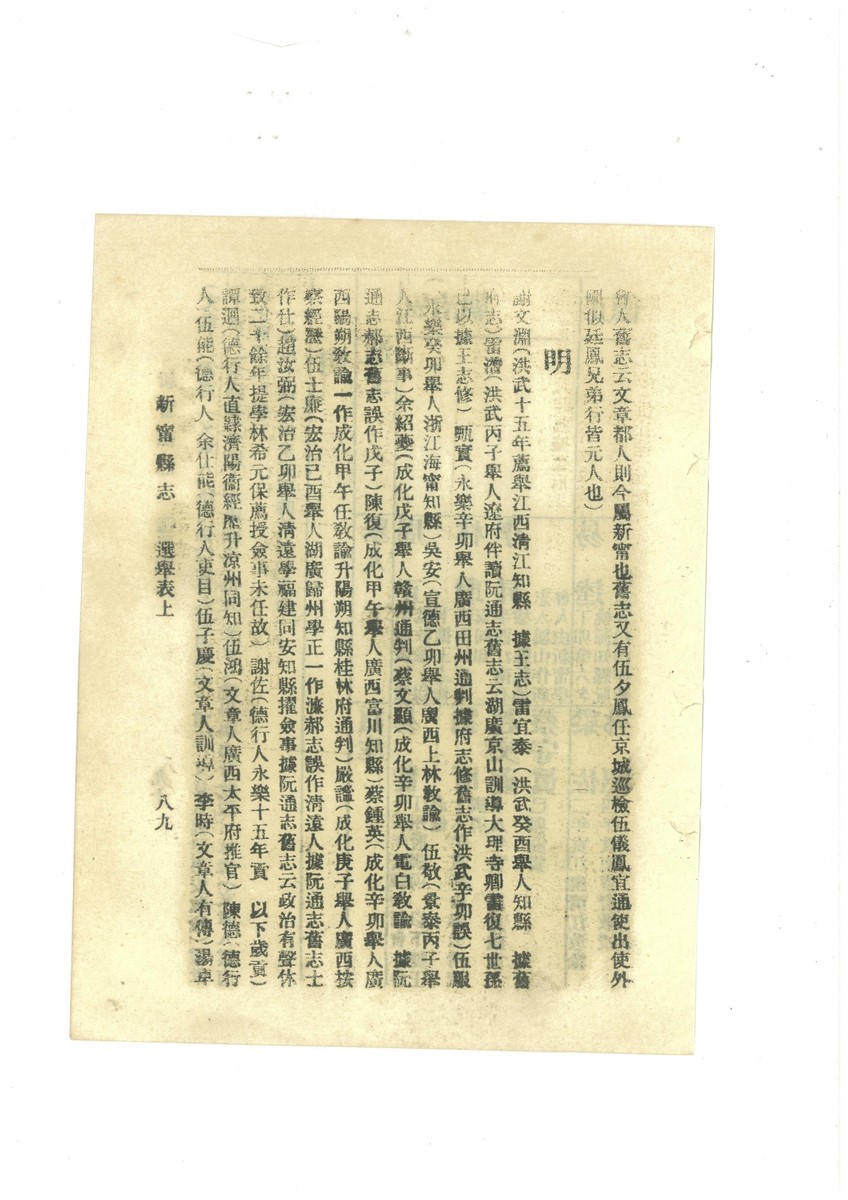 會人舊志云文章都人則今屬新甯也舊志又有伍夕鳳任京城巡檢伍儀鳳宜通使出使外
國似廷鳳兄弟行皆元人也）
明
謝文淵（洪武十五年薦舉江西清江知縣 據王志）雷宜泰（洪武癸酉舉人知縣 據舊
府志）雷濳（洪武丙子舉人遼府伴讀阮通志舊志云湖廣京山訓導大理寺卿雷復七世孫
已以據王志修）甄實（永樂辛卯舉人廣西田州通判據府志修舊志作洪武辛卯誤）伍服
（永樂癸卯舉人浙江海甯知縣）吳安（宣德乙卯舉人廣西上林敎諭）伍敬（景泰丙子舉
人江西斷事）余紹夔（成化戊子舉人贛州通判）蔡文顯（成化辛卯舉人電白敎諭 據阮
通志郝志舊志誤作戊子）陳復（成化甲午舉人廣西富川知縣）蔡鍾英（成化辛卯舉人廣
西陽朔敎諭一作成化甲午任敎諭升陽朔知縣桂林府通判）嚴謐（成化庚子舉人廣西按
察經歷）伍士廉（宏治己酉舉人湖廣歸州學正一作濂郝志誤作清遠人據阮通志舊志士
作仕）趙汝弼（宏治乙卯舉人清遠學福建同安知縣擢僉事據阮通志舊志云政治有聲休
致二十餘年提學林希元保薦授僉事未任故）謝佐（德行人永樂十五年貢 以下歲貢）
譚迴（德行人直隸濟陽衞經歷升凉州同知）伍鴻（文章人廣西太平府推官）陳德（德行
人）伍能（德行人）余仕能（德行人吏目）伍子慶（文章人訓導）李時（文章人有傳）湯卓
新甯縣志 選舉表上 八九